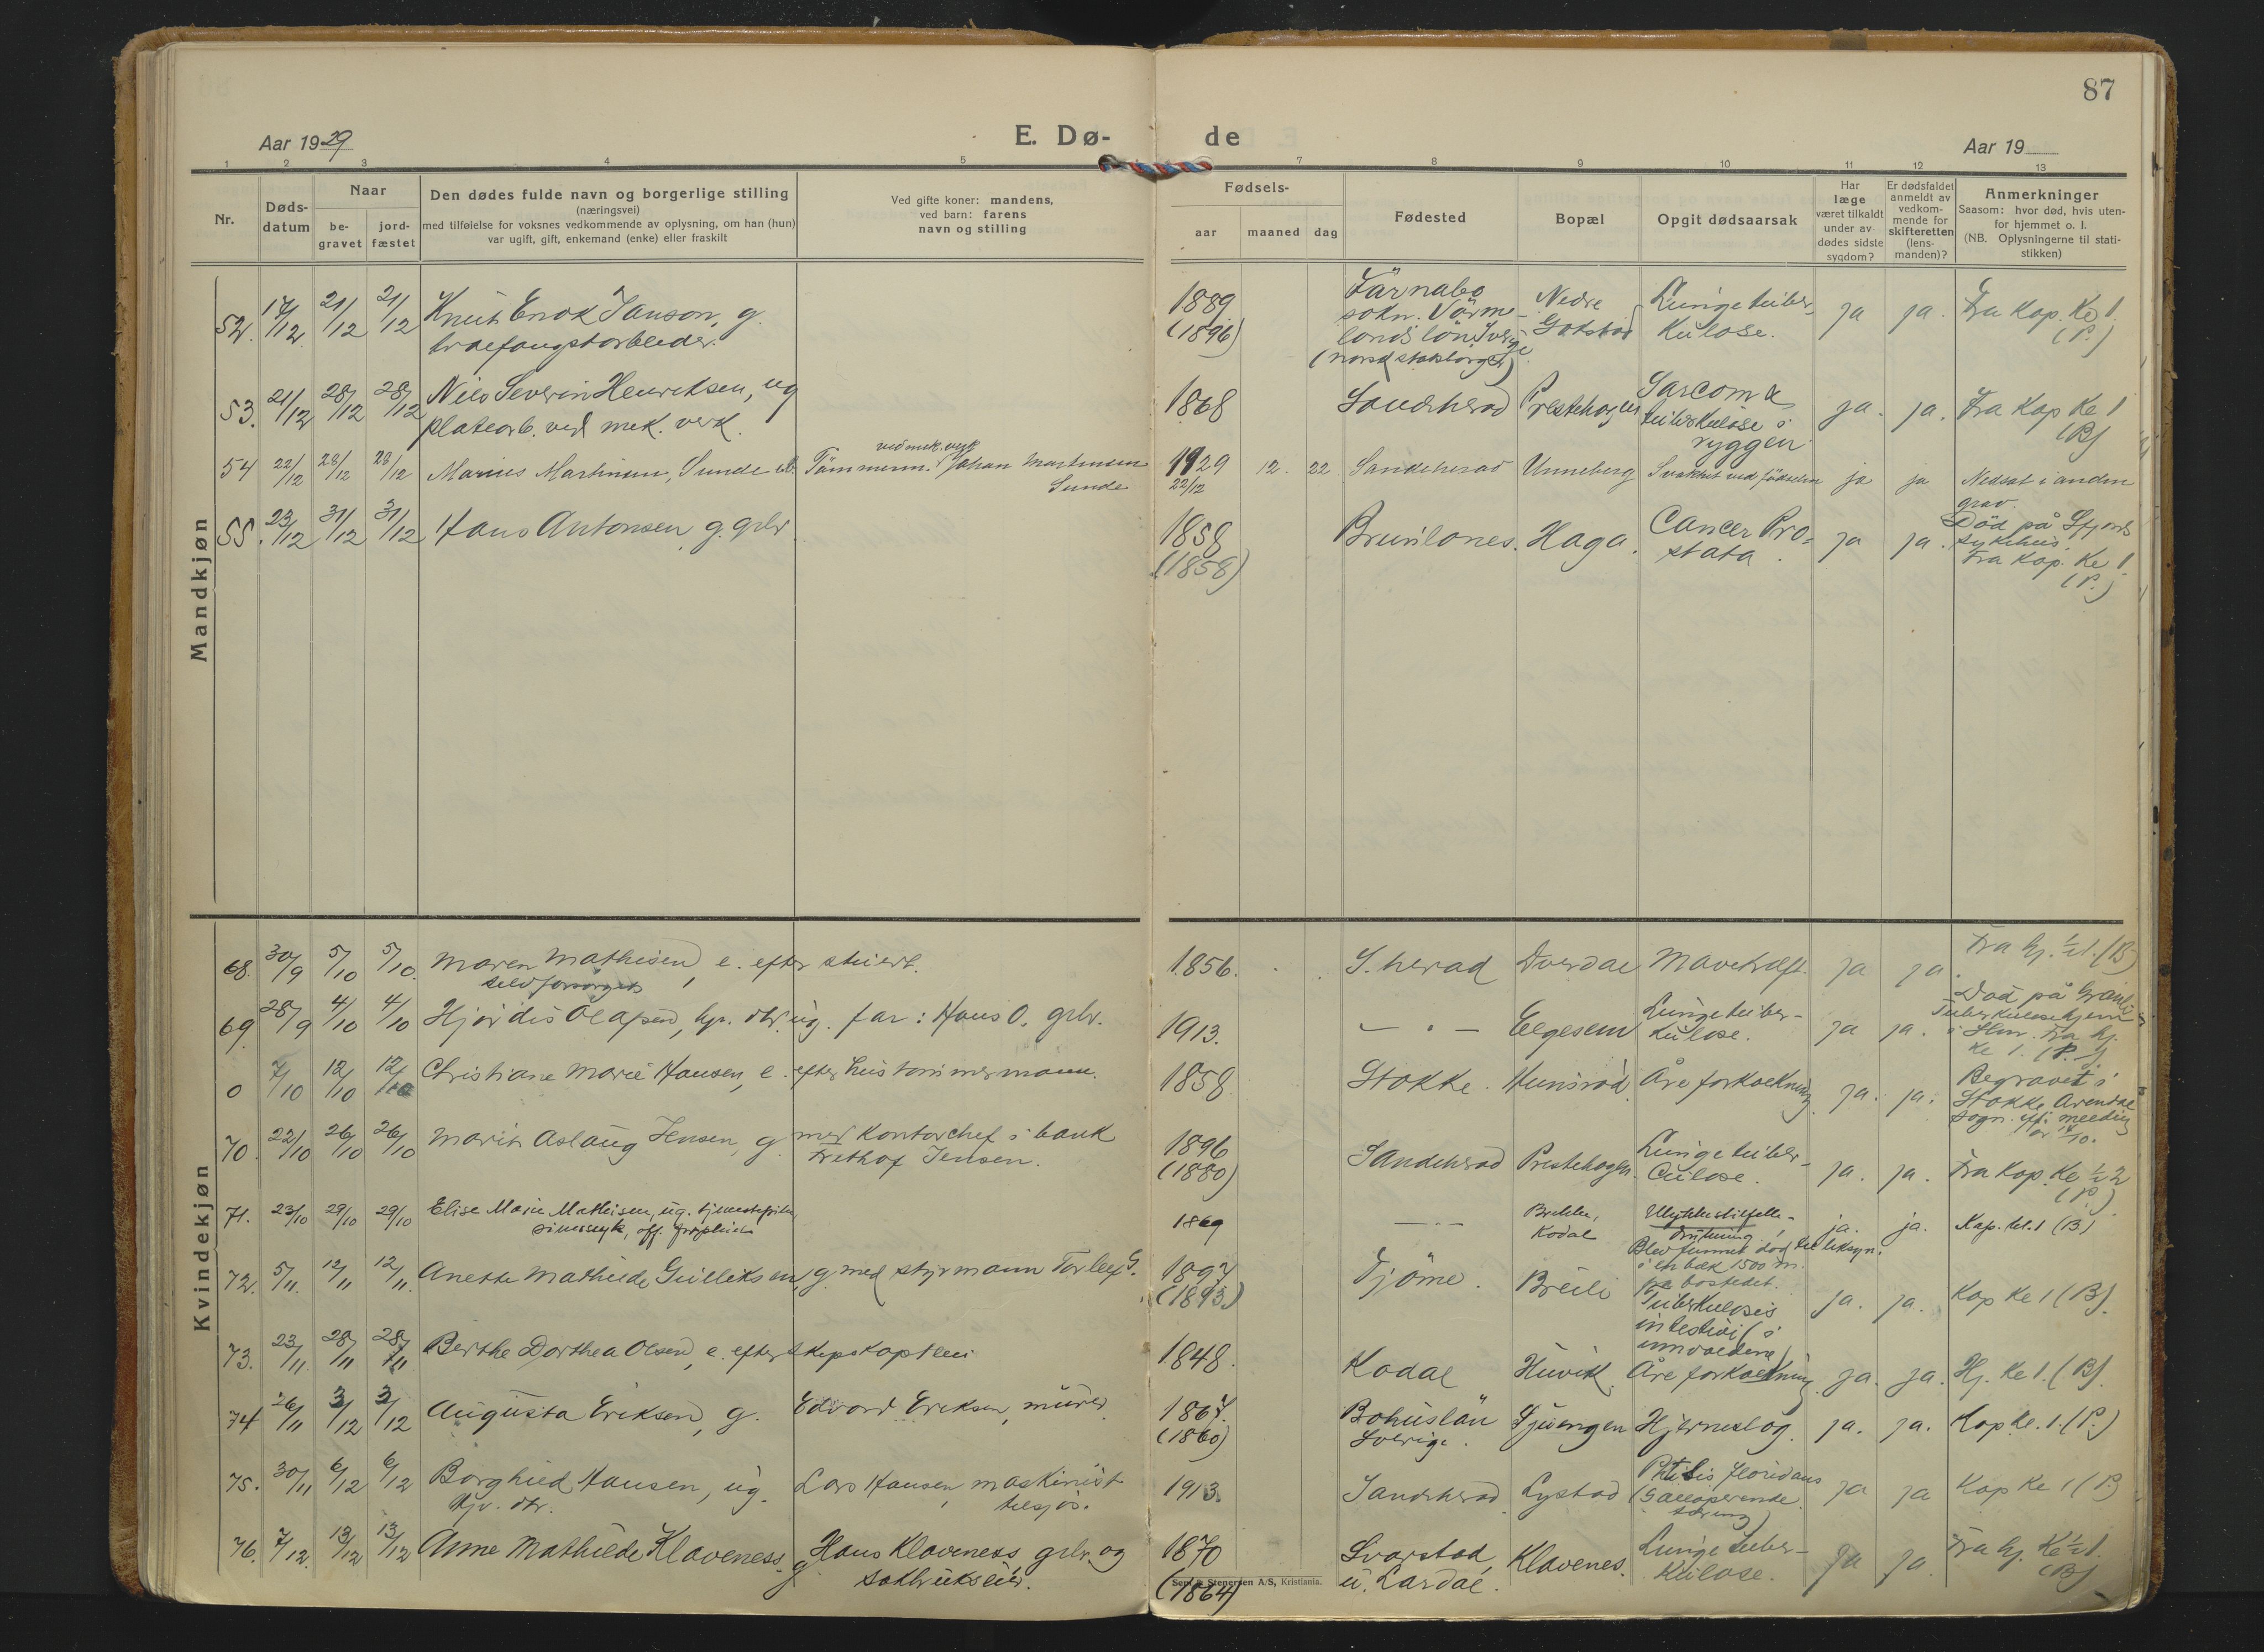 87
Aar 1929
E. Dø-
de
Aar 19
1 2 3 4 5 7 8 9 10 11 12 13
Nr.
Døds-
datum
Naar
be-
gravet
jord-
fæstet
Den dødes fulde navn og borgerlige stilling
(næringsvei)
med tilføielse for voksnes vedkommende av oplysning, om han (hun)
var ugift, gift, enkemand (enke) eller fraskilt
Ved gifte koner: mandens,
ved barn: farens
navn og stilling
Fødsels-
aar maaned dag
Fødested
Bopæl
Opgit dødsaarsak
Har
læge
været tilkaldt
under av-
dødes sidste
sygdom?
Er dødsfaldet
anmeldt av
vedkom-
mende for
skifteretten
(lens-
manden)?
Anmerkninger
Saasom: hvor død, hvis uten-
for hjemmet o. l.
(NB. Oplysningerne til stati-
stikken)
Mandkjøn
52. 17/12 21/12 21/12 Knut Enok Janson, g.
hvalfangstarbeider.
1889
(1896)
Färnabo
sokn. Värme-
lands län, Sverige
(norsk statsborger)
Nedre
Gokstad
Lungetuber-
kulose.
ja ja. Fra Kap. Kl 1.
(P.)
53. 21/12 28/12 28/12 Nils Severin Henriksen, ug
platearb. ved mek. verk.
1868 Sandeherad Prestehagen
Sarcom &
tuberkulose i
ryggen
ja. ja. Fra Kap Kl 1
(B)
54 22/12 28/12 28/12 Marius Martinsen, Sunde
ved mek. verk
Tömmerm. Johan Martinsen
Sunde
1929 12. 22.
22/12
Sandeherad Unneberg Svakhet ved födselen ja ja Nedsat i anden
grav.
55. 23/12 31/12 31/12 Hans Antonsen, g. grbr
1858
(1858)
Brunlanes. Haga.
Cancer Pro-
stata.
ja ja.
Död på Sfjords
sykehus.
Fra Kap. Kl 1.
(P.)
Kvindekjøn
68. 30/9 5/10 5/10. Maren Mathisen, e. efter skiert.
selvforsørget
1856. S.herad Dverdal Mavekræft. ja ja. Fra hj. ½1. (B)
69. 28/9 4/10 4/10 Hjördis Olafsen, hjv. dtr. ug. far: Hans O. grbr.
1913. — " — Elgesem
Lungetuber-
kulose.
ja ja.
Död på Granli
Tuberkulosehjem
i Slm. Fra hj.
kl 1. (P.)
0 7/10 12/10 12/10 Christiane Marie Hansen, e. efter hustömmermann.
1858 Stokke. Hunsrød. Åreforkalkning. ja. ja.
Begravet i
Stokke Arendal
sogn. eft. melding
av 14/10.
70. 22/10 26/10 26/10 Marit Aslaug Jensen, g. med kontorchef i bank
Frethof Jensen.
1896
(1880)
Sandeherad Prestehagen.
Lungetuber-
culose.
ja. ja. Fra Kap. Kl ½2
(P.)
71. 23/10 29/10 29/10 Elise Marie Mathisen, ug. tjenestepike,
sinnssyk, off. forpleiet
1869 — " — Brekke,
Kodal
Ulykkestilfelle-
drukning!
Blev funnet död
i en bæk 1500 m.
fra bostedet.
ja. ja. Kap. kl. 1 (B.)
72. 5/11. 12/11 12/11. Anette Mathilde Gulliksen, g. med styrmann Torleif G.
1897
(1893.)
Tjöme. Breili
Tuberkulosis
intestini (i
innvoldene)
ja. ja. Kap kl 1 (B).
73. 23/11. 28/11 28/11 Berthe Dorthea Olsen, e. efter skipskaptein
1848. Kodal Huvik. Åreforkalkning. ja. ja. Hj. kl 1. (B).
74 26/11 3/12 3/12 Augusta Eriksen, g. Edvard Eriksen, murer
1867.
(1860)
Bohuslän
Sverige.
Ljuengen Hjerneslag. ja. ja. Kap kl. 1. (P.)
75. 30/11 6/12 6/12 Borghild Hansen, ug.
hjv. dtr.
Lars Hansen, maskinist
tilsjös.
1913. Sandeherad Lystad
Phtisis floridans
(Galloperende
tæring)
ja ja Kap kl 1 (P.)
76. 7/12. 13/12 13/12 Anne Mathilde Klaveness. g. Hans Klaveness, grbr. og
sakbrukseier.
1870
(1864)
Svarstad,
u. Lardal.
Klavenes.
Lungetuber-
kulose.
ja ja. Fra hj. Kl ½1.
(B)
Sem & Stenersen A/S, Kristiania.